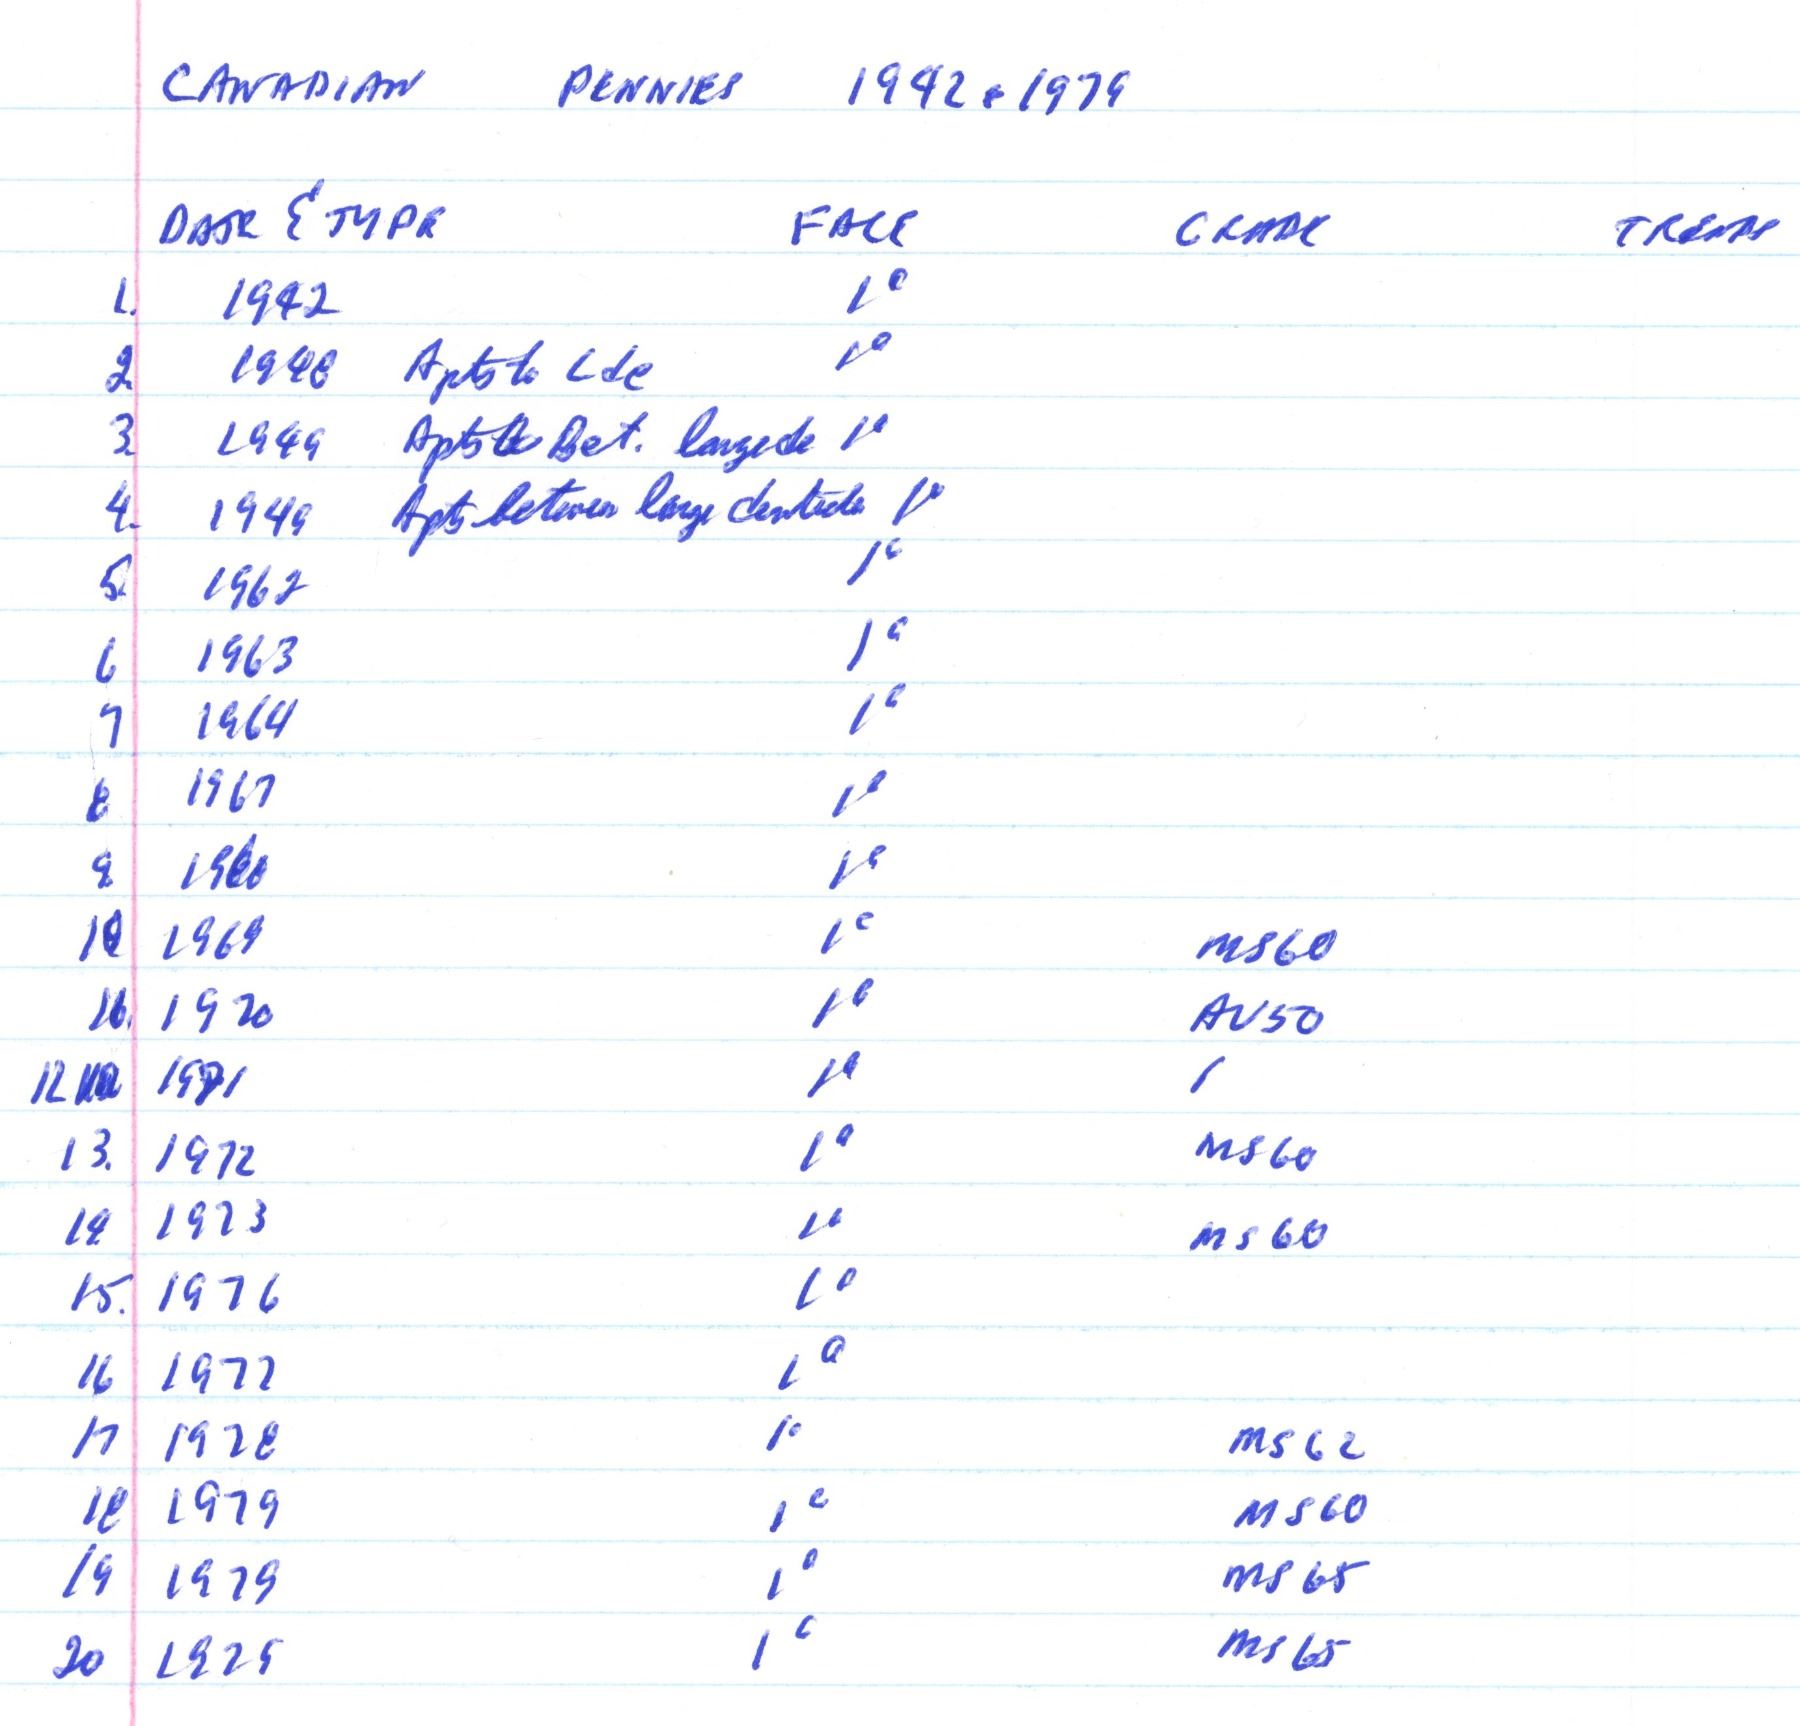 CANADIAN PENNIES 1942 & 1979
DATE & TYPE FACE GRADE TRENDS
1. 1942 1¢
2 1948 Apts to Lde 1¢
3 1949 Apts to Bet. large de 1¢
4. 1949 Apts between large denticles 1¢
5. 1962 1¢
6 1963 1¢
7 1964 1¢
8 1967 1¢
9 1968 1¢
10 1969 1¢ MS60
11. 1970 1¢ AU50
12 1971 1¢
13. 1972 1¢ MS60
14 1973 1¢ MS60
15. 1976 1¢
16 1977 1¢
17 1978 1¢ MS62
18 1979 1¢ MS60
19 1979 1¢ MS65
20 1979 1¢ MS65